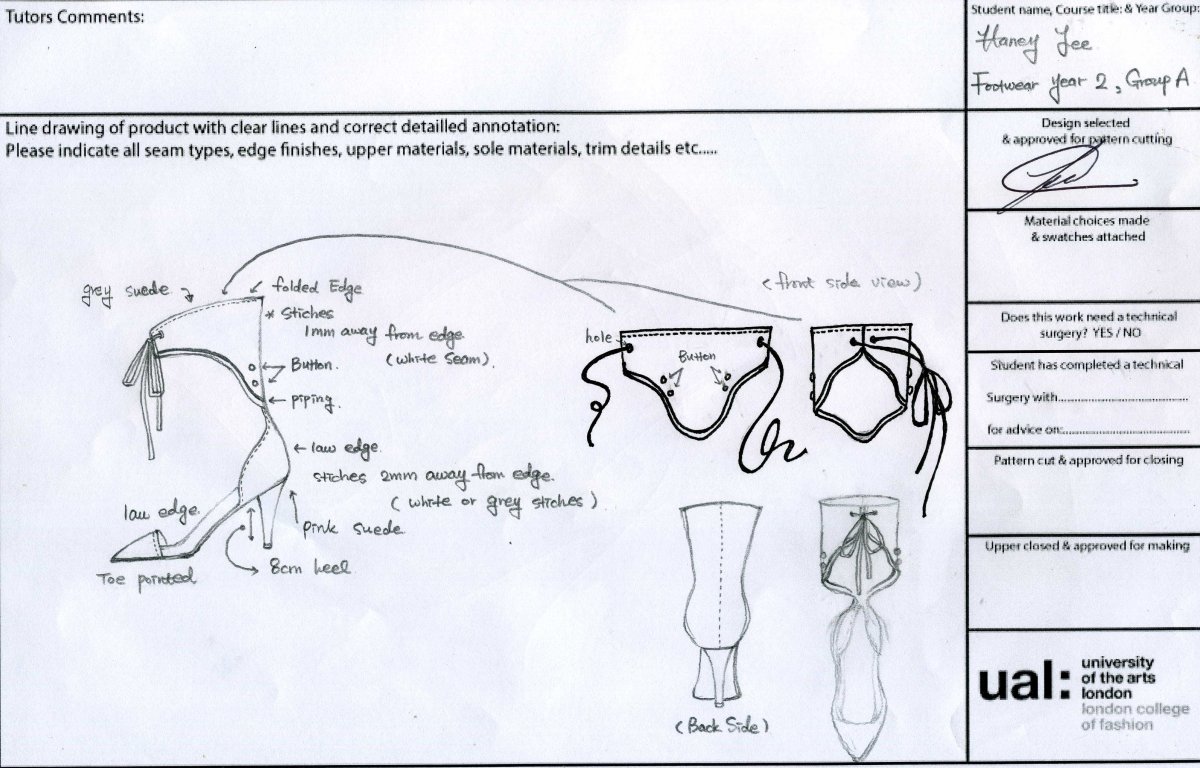 Tutors Comments:
Student name, Course title: & Year Group:
Haney Lee
Footwear Year 2, Group A
Line drawing of product with clear lines and correct detailled annotation:
Please indicate all seam types, edge finishes, upper materials, sole materials, trim details etc.....
Design selected
& approved for pattern cutting
Material choices made
& swatches attached
Does this work need a technical
surgery? YES / NO
Student has completed a technical
Surgery with
for advice on:
Pattern cut & approved for closing
Upper closed & approved for making
grey suede
folded Edge
* Stiches
1mm away from edge
(white seam).
Button.
piping.
law edge
stiches 2mm away from edge.
(white or grey stiches)
pink suede
lau edge.
8cm heel.
Toe pointed
(front side view)
hole
Button
(Back Side)
ual:
university
of the arts
london
london college
of fashion